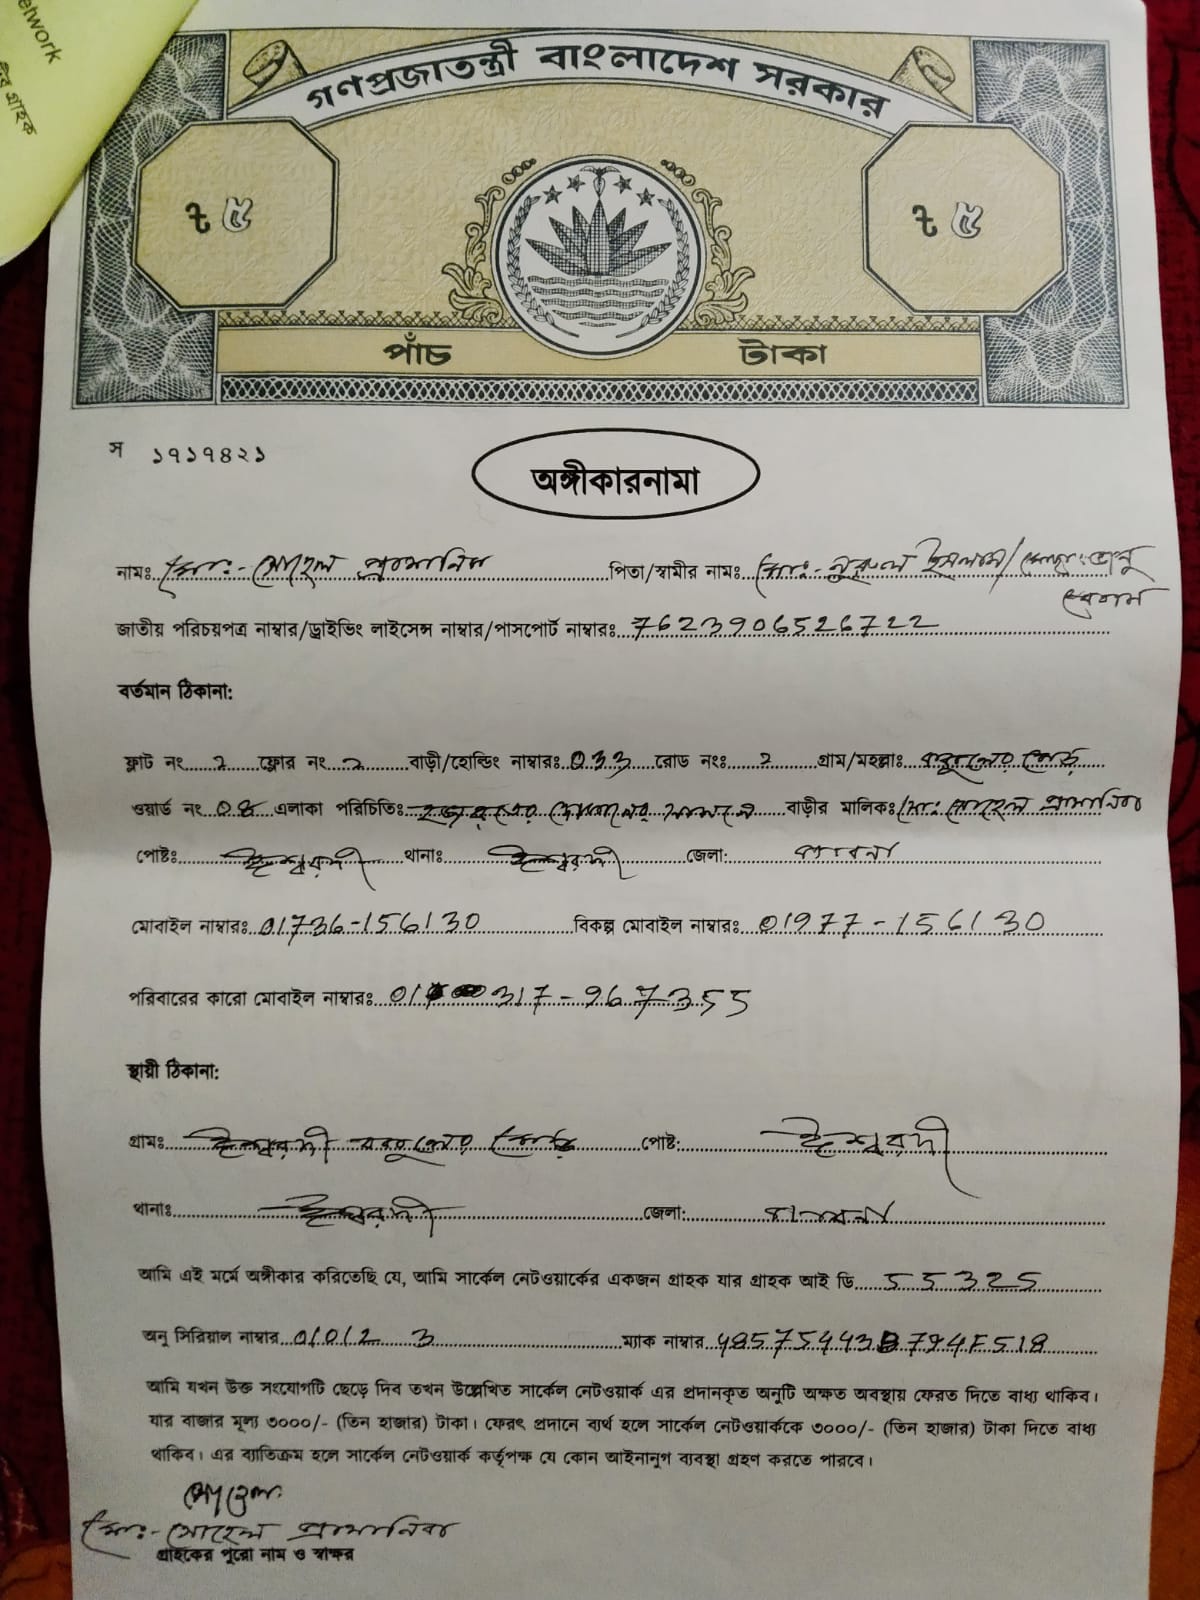 etwork
ীর গ্রাহক
গণপ্রজাতন্ত্রী বাংলাদেশ সরকার
৳ ৫
৳ ৫
পাঁচ টাকা
স ১৭১৭৪২১
অঙ্গীকারনামা
নামঃ মোঃ- সোহেল প্রামানিক পিতা/স্বামীর নামঃ মোঃ- নুরুল ইসলাম/মোছাঃ ভানু
বেগম
জাতীয় পরিচয়পত্র নাম্বার/ড্রাইভিং লাইসেন্স নাম্বার/পাসপোর্ট নাম্বারঃ 7623906526722
বর্তমান ঠিকানা:
ফ্লাট নং 2 ফ্লোর নং 2 বাড়ী/হোল্ডিং নাম্বারঃ 033 রোড নংঃ 2 গ্রাম/মহল্লাঃ
ওয়ার্ড নং 04 এলাকা পরিচিতিঃ দোকানের সামনে বাড়ীর মালিকঃ মোঃ সোহেল প্রামানিক
পোষ্টঃ ঈশ্বরদী থানাঃ ঈশ্বরদী জেলা: পাবনা
মোবাইল নাম্বারঃ 01736-156130 বিকল্প মোবাইল নাম্বারঃ 01977-156130
পরিবারের কারো মোবাইল নাম্বারঃ 01 317-967355
স্থায়ী ঠিকানা:
গ্রামঃ ঈশ্বরদী পোষ্ট: ঈশ্বরদী
থানাঃ ঈশ্বরদী জেলা: পাবনা
আমি এই মর্মে অঙ্গীকার করিতেছি যে, আমি সার্কেল নেটওয়ার্কের একজন গ্রাহক যার গ্রাহক আই ডি 55325
অনু সিরিয়াল নাম্বার 01012 3 ম্যাক নাম্বার 485754438794F518
আমি যখন উক্ত সংযোগটি ছেড়ে দিব তখন উল্লেখিত সার্কেল নেটওয়ার্ক এর প্রদানকৃত অনুটি অক্ষত অবস্থায় ফেরত দিতে বাধ্য থাকিব।
যার বাজার মূল্য ৩০০০/- (তিন হাজার) টাকা। ফেরৎ প্রদানে ব্যর্থ হলে সার্কেল নেটওয়ার্ককে ৩০০০/- (তিন হাজার) টাকা দিতে বাধ্য
থাকিব। এর ব্যাতিক্রম হলে সার্কেল নেটওয়ার্ক কর্তৃপক্ষ যে কোন আইনানুগ ব্যবস্থা গ্রহণ করতে পারবে।
সোহেল
মোঃ- সোহেল প্রামানিক
গ্রাহকের পুরো নাম ও স্বাক্ষর